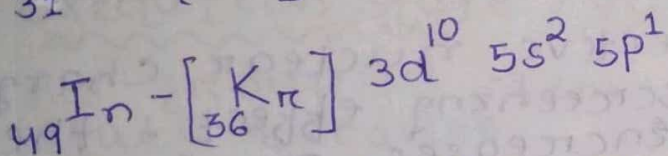 31
₄₉In - [₃₆Kr] 3d¹⁰ 5s² 5p¹